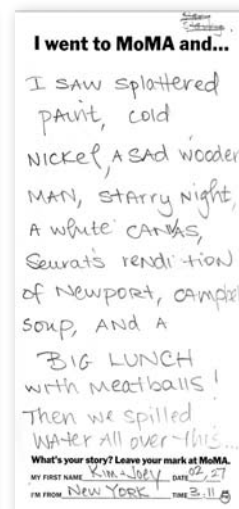 I went to MoMA and...
I SAW Splattered
PAint, cold
Nickel, A SAD wooden
MAN, StArry Night,
A white CANVAS,
Seurat's rendition
of Newport, CAMpbel
Soup, AND A
BIG LUNCH
with Meatballs!
Then we spilled
WAter All over this...
What's your story? Leave your mark at MoMA.
MY FIRST NAME Kim + Joey DATE 02, 27
I'M FROM New YORK TIME 3.11